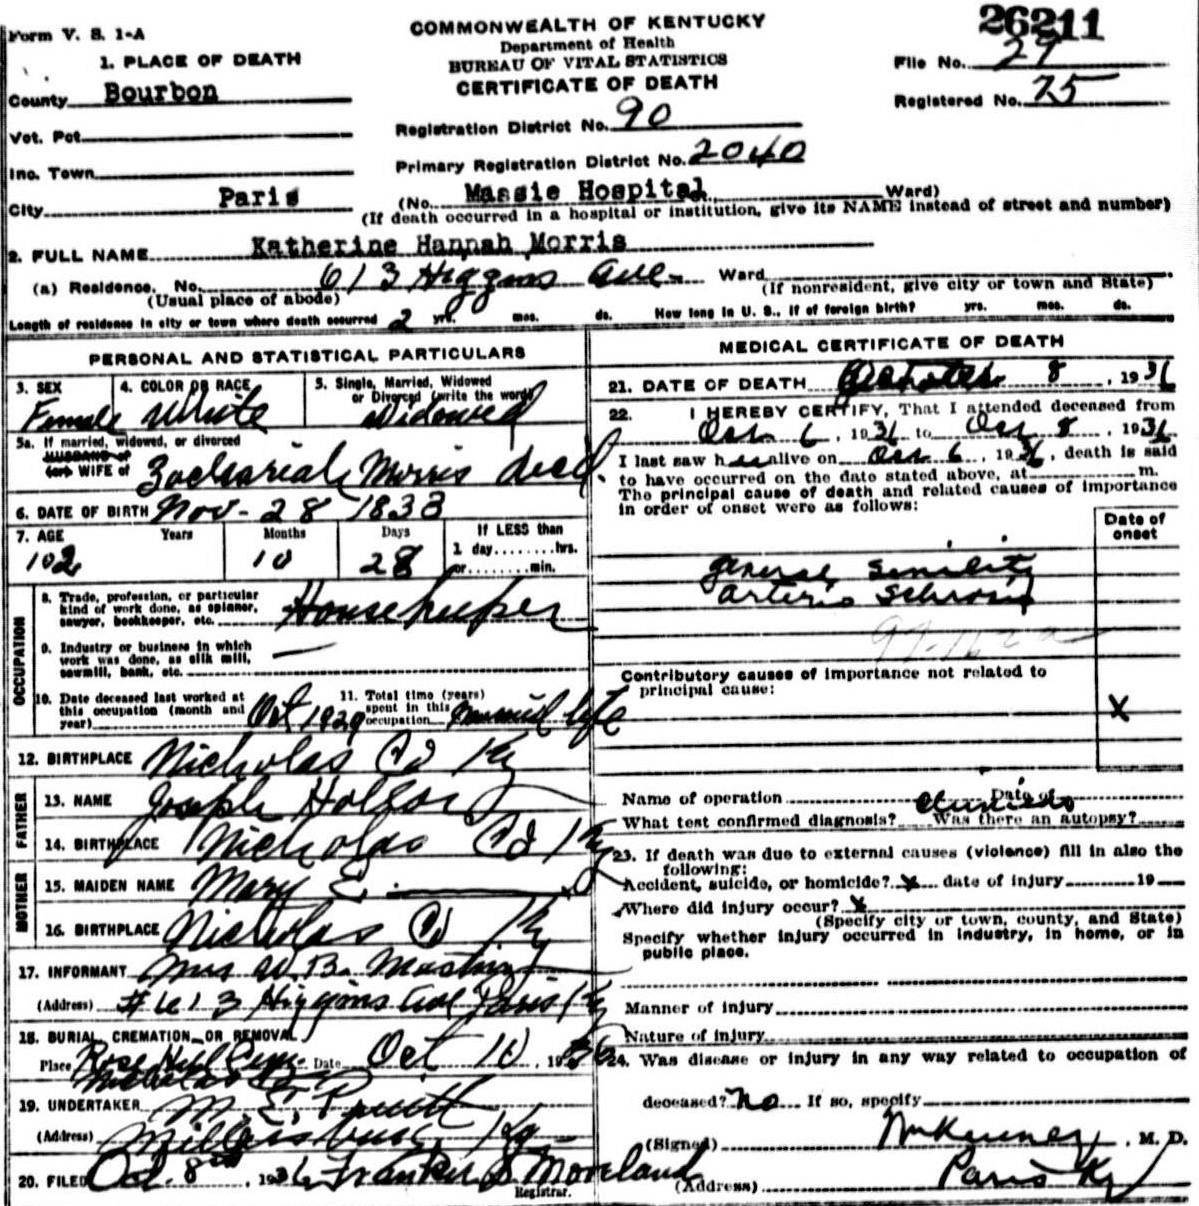 Form V. S. 1-A
COMMONWEALTH OF KENTUCKY
Department of Health
BUREAU OF VITAL STATISTICS
CERTIFICATE OF DEATH
26211
File No. 29
Registered No. 75
1. PLACE OF DEATH
County Bourbon
Vot. Pct.
Inc. Town
City Paris
Registration District No. 90
Primary Registration District No. 2040
(No. Massie Hospital Ward)
(If death occurred in a hospital or institution, give its NAME instead of street and number)
2. FULL NAME Katherine Hannah Morris
(a) Residence. No. 613 Higgins Ave. Ward
(Usual place of abode) (If nonresident, give city or town and State)
Length of residence in city or town where death occurred 2 yrs. mos. ds. How long in U. S., if of foreign birth? yrs. mos. ds.
PERSONAL AND STATISTICAL PARTICULARS
3. SEX Female
4. COLOR OR RACE White
5. Single, Married, Widowed
or Divorced (write the word)
Widowed
5a. If married, widowed, or divorced
HUSBAND of
(or) WIFE of Zachariah Morris decd.
6. DATE OF BIRTH Nov- 28 1833
7. AGE Years Months Days If LESS than
102 10 28 1 day........hrs.
or........min.
OCCUPATION
8. Trade, profession, or particular
kind of work done, as spinner,
sawyer, bookkeeper, etc. Housekeeper
9. Industry or business in which
work was done, as silk mill,
sawmill, bank, etc. —
10. Date deceased last worked at
this occupation (month and
year) Oct 1929
11. Total time (years)
spent in this
occupation life
12. BIRTHPLACE Nicholas Co Ky
FATHER
13. NAME Joseph
14. BIRTHPLACE Nicholas Co Ky
MOTHER
15. MAIDEN NAME Mary E.
16. BIRTHPLACE Nicholas Co Ky
17. INFORMANT Mrs W. B.
(Address) #613 Higgins Ave Paris Ky
18. BURIAL, CREMATION, OR REMOVAL
Place Rose Hill Cem. Date Oct 10, 1936
Nicholas Co
19. UNDERTAKER M. E. Pruitt
(Address) Millersburg, Ky
20. FILED Oct. 8th, 1936 S Moreland
Registrar.
MEDICAL CERTIFICATE OF DEATH
21. DATE OF DEATH October 8, 1936
22. I HEREBY CERTIFY, That I attended deceased from
Oct 6, 1936 to Oct 8, 1936
I last saw her alive on Oct 6, 1936, death is said
to have occurred on the date stated above, at m.
The principal cause of death and related causes of importance
in order of onset were as follows:
Date of
onset
General Senility
Arterio
Contributory causes of importance not related to
principal cause:
X
Name of operation Date of
What test confirmed diagnosis? Was there an autopsy?
23. If death was due to external causes (violence) fill in also the
following:
Accident, suicide, or homicide? x date of injury 19
Where did injury occur? x
(Specify city or town, county, and State)
Specify whether injury occurred in industry, in home, or in
public place.
Manner of injury
Nature of injury
24. Was disease or injury in any way related to occupation of
deceased? No If so, specify
(Signed) , M. D.
(Address) Paris Ky